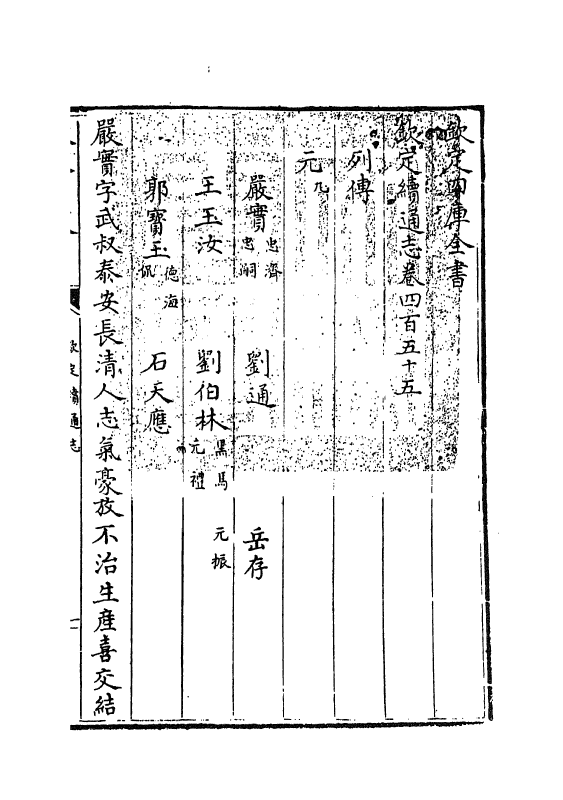 欽定四庫全書
欽定續通志卷四百五十五
列傳
元九
嚴實忠濟忠嗣 劉通 岳存
王玉汝 劉伯林黑馬元禮元振
郭寶玉德海侃 石天應
嚴實字武叔泰安長清人志氣豪放不治生產喜交結
欽定續通志